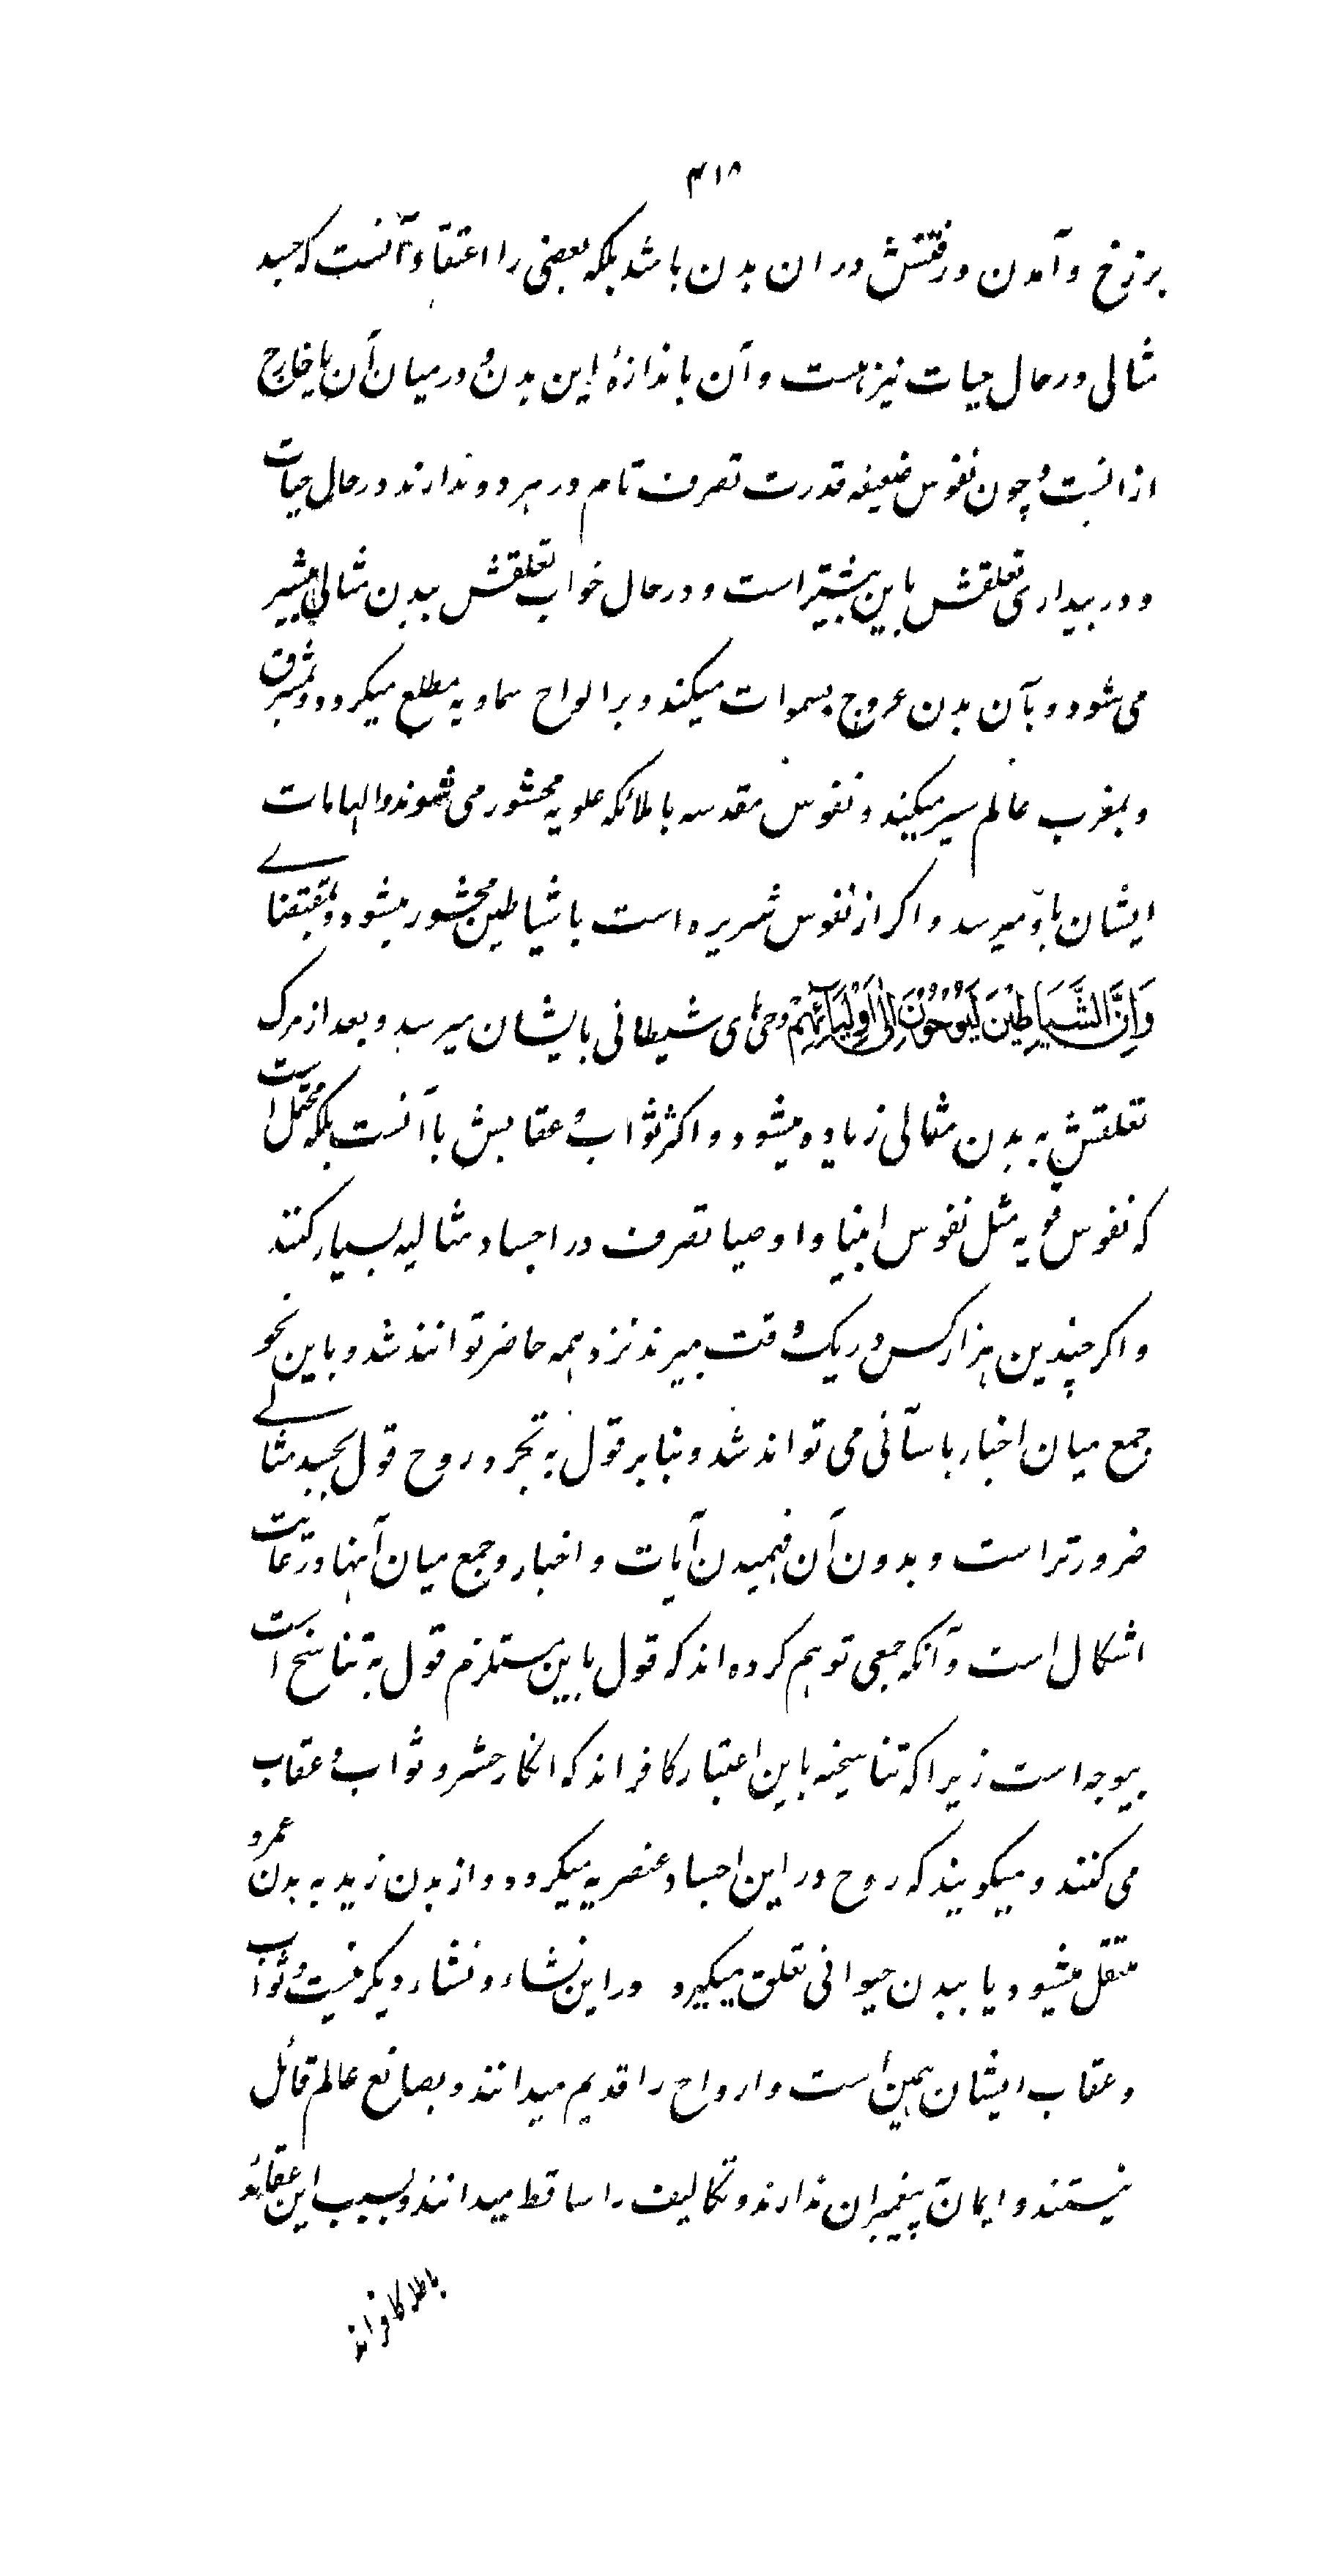 ۴۱۸
برزخ و آمدن و رفتنش در ان بدن باشد بلکه بعضی را اعتقاد آنست که جسد
مثالی در حال حیات نیز هست و آن باندازهٔ این بدن و در میان آن یا خارج
ازانست و چون نفوس ضعیفه قدرت تصرف تام در هر دو ندارند در حال حیات
و در بیداری تعلقش باین بیشتر است و در حال خواب تعلقش ببدن مثالی بیشتر
می شود و بآن بدن عروج بسموات میکند و بر الواح سماویه مطلع میکردد و بمشرق
و بمغرب عالم سیر میکند و نفوس مقدسه با ملائکه علویه محشور می شوند و الهامات
ایشان باو میرسد و اکر از نفوس شریره است با شیاطین محشور میشود و بمقتضای
وَاِنَّ الشَّیَاطِیْنَ لَیُوْحُوْنَ اِلٰی اَوْلِیَائِهِمْ وحی های شیطانی بایشان میرسد و بعد از مرک
تعلقش به بدن مثالی زیاده میشود و اکثر ثواب و عقابش باآنست بلکه محتمل است
که نفوس قویه مثل نفوس انبیا و اوصیا تصرف در اجساد مثالیه بسیار کنند
و اکر چندین هزار کس در یک وقت بمیرند نزد همه حاضر توانند شد و باین نحو
جمع میان اخبار باسآنی می تواند شد و بنابر قول به تجرد روح قول بجسد مثالی
ضرورتر است و بدون آن فهمیدن آیات و اخبار و جمع میان آنها در غایت
اشکال است و آنکه جمعی توهم کرده اند که قول باین مستلزم قول به تناسخ است
بیوجه است زیرا که تناسخیه باین اعتبار کافراند که انکار حشر و ثواب و عقاب
می کنند و میکویند که روح در این اجساد عنصریه میکردد و از بدن زید به بدن عمرو
منتقل میشود یا ببدن حیوانی تعلق میکیرد و در این نشاء و نشاء دیکر نیست و ثواب
و عقاب ایشان همین است و ارواح را قدیم میدانند و بصانع عالم قائل
نیستند و ایمان به پیغمبران ندارند و تکالیف را ساقط میدانند و بسبب این عقائد
باطله کافراند